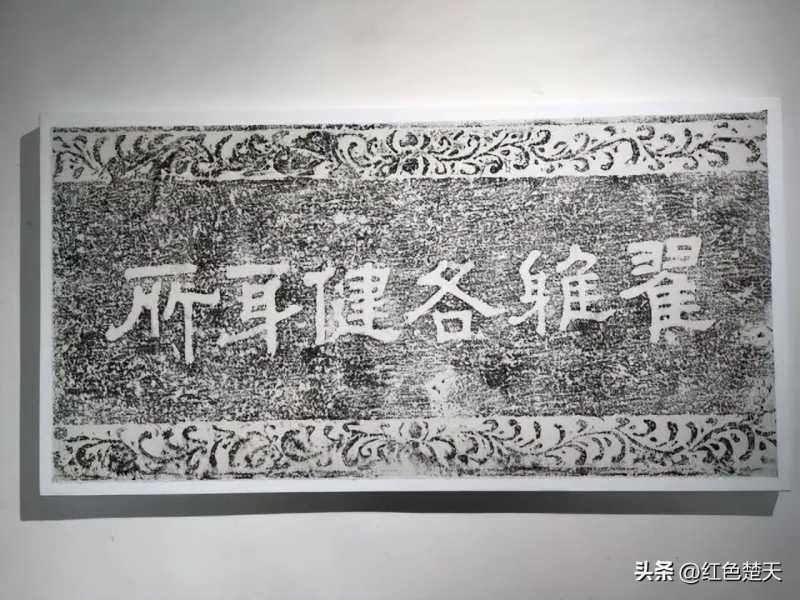 翟雅各健身所
头条 @红色楚天